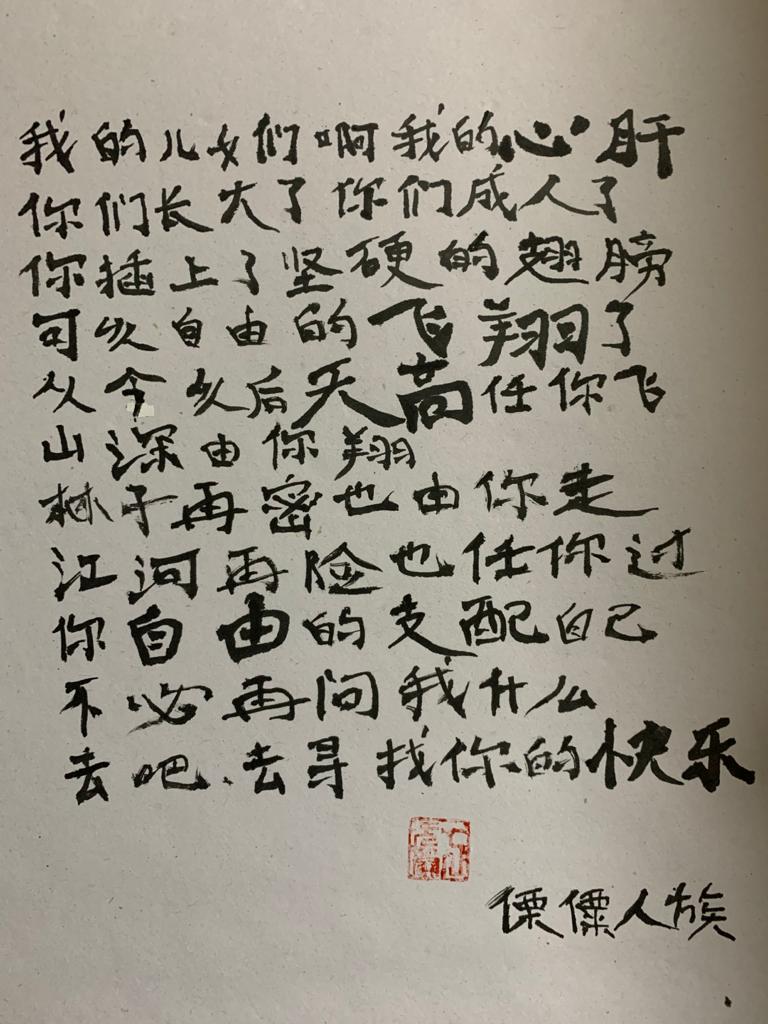 我的儿女们啊我的心肝
你们长大了你们成人了
你插上了坚硬的翅膀
可以自由的飞翔了
从今以后天高任你飞
山深由你翔
林子再密也由你走
江河再险也任你过
你自由的支配自己
不必再问我什么
去吧、去寻找你的快乐
傈僳人族